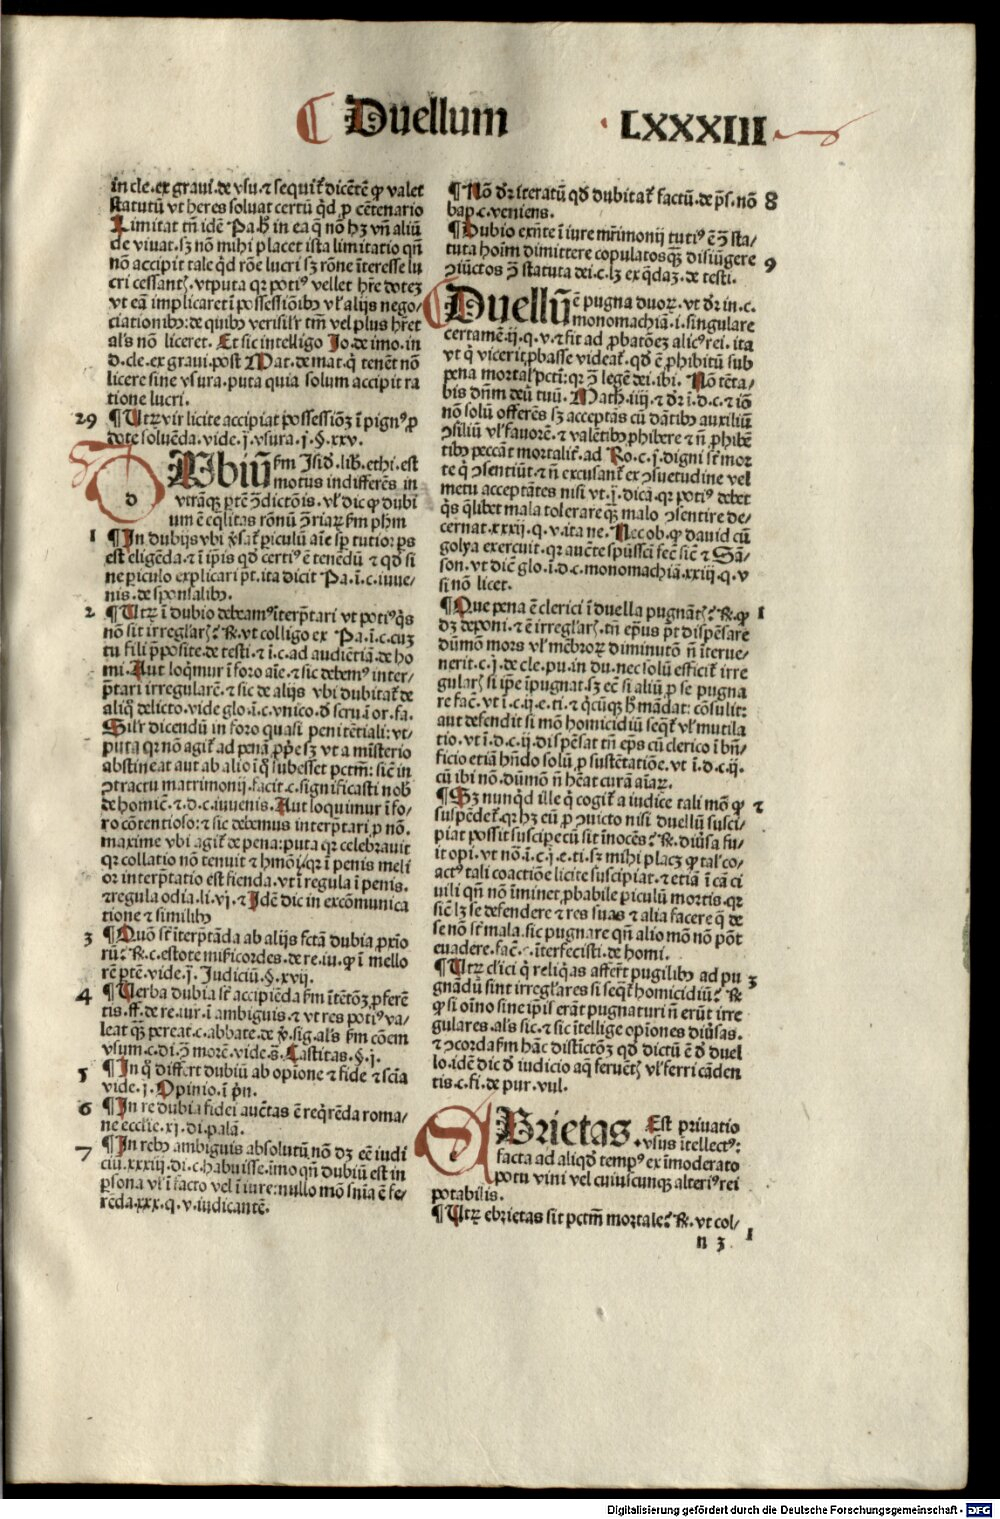 Duellum
LXXXIII
in cle. ex graui. de vsu. ⁊ sequit᷑ dicētē ꝙ valet
statutū vt heres soluat certū qd̓ ꝓ cētenario
Limitat tn̄ idē Pa. in ea q̄ nō hꝫ vn̄ aliū
de viuat. sꝫ nō mihi placet ista limitatio qn̄
nō accipit tale qd̓ rōe lucri sꝫ rōne īteresse lu
cri cessant. vtputa qꝛ potiꝰ vellet hr̄e dotez
vt eā implicaret ī possessiōibꝰ vl̓ alijs nego/
ciationibꝰ: de quibꝰ verisil̓r tm̄ vel plus hr̄et
al̓s nō liceret. Et sic intelligo Jo. de imo. in
d. cle. ex graui. post Mat. de mat. q̄ tenēt nō
licere sine vsura. puta quia solum accipit ra
tione lucri.
29 ¶ Utꝝ vir licite accipiat possessiōꝫ ī pignꝰ ꝓ
dote soluēda. vide. j. vsura. j. §. xxv.
d
Ubiū ẜm Isid̓. lib. ethi. est
motus indifferēs in
vtrāqꝫ ꝑtē ꝯdictōis. vl̓ dic ꝙ dubi
um ē eq̄litas rōnū ꝯriaꝝ ẜm phm̄
1 ¶ In dubijs vbi ꝟsat᷑ ꝑiculū aīe sꝑ tutior ps̄
est eligēda. ⁊ ī ip̄is qd̓ certiꝰ ē tenēdū ⁊ qd̓ si
ne ꝑiculo explicari pt̄. ita dicit Pa. ī. c. iuue/
nis. de sponsalibꝰ.
2 ¶ Utꝝ ī dubio debeamꝰ īterp̄tari vt potiꝰ q̄s
nō sit irreglaris? ℞. vt colligo ex Pa. ī. c. cuꝫ
tu fili p̄posite. de testi. ⁊ ī. c. ad audiētiā. de ho
mi. Aut loq̄mur ī foro aīe. ⁊ sic debemꝰ inter/
p̄tari irregularē. ⁊ sic de alijs vbi dubitat᷑ de
aliq̄ delicto. vide glo. ī. c. vnico. d̓ scru. ī or. fa.
Sil̓r dicendū in foro quasi penitētiali: vt/
puta qꝛ nō agit᷑ ad penā ꝓp̄e sꝫ vt a mīsterio
abstineat aut ab alio ī q̄ subesset pctm̄: sic̄ in
ꝯtractu matrimonij. facit. c. significasti nob̓
de homic̄. ⁊. d. c. iuuenis. Aut loquimur ī fo/
ro cōtentioso: ⁊ sic debemus interp̄tari ꝓ nō.
maxime vbi agit᷑ de pena: puta qꝛ celebrauit
qꝛ collatio nō tenuit ⁊ hmōi. qꝛ ī penis meli
or interp̄tatio est fienda. vt ī regula ī penis.
⁊ regula odia. li. vj. ⁊ Idē dic in excōmunica
tione ⁊ similibꝰ
3 ¶ Quō st̄ īterp̄tāda ab alijs fctā dubia ꝓxīo
rū? ℞. c. estote misericordes. de re. iu. ꝙ ī mello
rē ꝑtē. vide. j. Judiciū. §. xvij.
4 ¶ Uerba dubia st̄ accipiēda ẜm ītētōꝫ ꝓferē
tis. ff. de re. iur. ī ambiguis. ⁊ vt res potiꝰ va/
leat qꝫ pereat. c. abbate. de ꝟ. sig. al̓s ẜm cōem
vsum. c. di. ꝯ morē. vide. s̄. Castitas. §. j.
5 ¶ In q̄ differt dubiū ab opīone ⁊ fide ⁊ scīa
vide. j. Opinio. ī p̄n.
6 ¶ In re dubia fidei auctas ē req̄rēda roma/
ne ecclīe. xj. di. palā.
7 ¶ In rebꝰ ambiguis absolutū nō dꝫ eē iudi
ciū. xxxiij. di. c. habuisse. īmo qn̄ dubiū est in
ꝑsona vl̓ ī facto vel ī iure: nullo mō snīa ē fe/
rēda. xxx. q. v. iudicantē.
¶ Nō dr̄ iteratū qd̓ dubitat᷑ factū. de p̄s. nō 8
bap. c. veniens.
¶ Dubio exn̄te ī iure mr̄imonij tutiꝰ ē ꝯ sta/
tuta hoīm dimittere copulatos qꝫ disiūgere 9
ꝯiūctos ꝯ statuta dei. c. lꝫ ex q̄daꝫ. de testi.
Duellū ē pugna duoꝝ. vt dr̄ in. c.
monomachiā. i. singulare
certamē. ij. q. v. ⁊ fit ad ꝓbatōeꝫ alicꝰ rei. ita
vt q̄ vicerit ꝓbasse videat᷑. qd̓ ē ꝓhibitū sub
pena mortal̓ pcti: qꝛ ꝯ legē dei. ibi. Nō tēta/
bis dn̄m deū tuū. Math. iiij. ⁊ dr̄ ī. d. c. ⁊ iō
nō solū offerēs sꝫ acceptās cū dātibꝰ auxiliū
ꝯsiliū vl̓ fauorē. ⁊ valētibꝰ ꝓhibere ⁊ n̄ ꝓhibē
tibꝰ peccāt mortalit᷑. ad Ro. c. j. digni st̄ mor
te q̄ ꝯsentiūt. ⁊ n̄ excusant᷑ ex ꝯsuetudine vel
metu acceptātes nisi vt. j. dicā. qꝛ potiꝰ debet
q̄s q̄libet mala tolerare qꝫ malo ꝯsentire de/
cernat. xxxij. q. v. ita ne. Nec ob. ꝙ dauid cū
golya exercuit. qꝛ auctē spūssci fec̄ sic̄ ⁊ Sā/
son. vt dic̄ glo. ī. d. c. monomachiā. xxiij. q. v
si nō licet.
¶ Que pena ē clerici ī duello pugnātis? ℞. ꝙ 1
dꝫ deponi. ⁊ ē irreglaris. tn̄ ep̄us pt̄ dispēsare
dūmō mors vl̓ mēbroꝝ diminutō n̄ iterue/
nerit. c. j. de cle. pu. in du. nec solū efficit᷑ irre
gularis si ip̄e īpugnat. sꝫ ec̄ si aliū ꝓ se pugna
re fac̄. vt ī. c. ij. e. ti. ⁊ q̄cūqꝫ hˀ mādat: cōsulit:
aut defendit si mō homicidiū seqt᷑ vl̓ mutila
tio. vt ī. d. c. ij. dispēsat tn̄ ep̄s cū clerico ī bn̄/
ficio etiā hn̄do solū ꝓ sustētatiōe. vt ī. d. c. ij.
cū ibi nō. dūmō n̄ hēat curā aīaꝝ.
¶ Sꝫ nunqd̓ ille q̄ cogit᷑ a iudice tali mō ꝙ 2
suspēdet᷑. qꝛ hꝫ eū ꝓ ꝯuicto nisi duellū susci/
piat possit suscipe cū sit inocēs? ℞. diūsa fu/
it opi. vt nō. ī. c. j. e. ti. sꝫ mihi placꝫ ꝙ tal̓ co/
actꝰ tali coactiōe licite suscipiat. ⁊ etiā ī cā ci
uili qn̄ nō īminet ꝓbabile ꝑiculū mortis. qꝛ
sic̄ lꝫ se defendere ⁊ res suas ⁊ alia facere q̄ de
se nō st̄ mala. sic pugnare qn̄ alio mō nō pōt
euadere. fac̄. c. īterfecisti. de homi.
¶ Utꝝ cl̓ici q̄ reliq̄as affert᷑ pugilibꝰ ad pu 3
gnādū sint irreglares si seqt᷑ homicidiū? ℞
ꝙ si oīno sine ip̄is erāt pugnaturi n̄ erūt irre
gulares. al̓s sic. ⁊ sic ītellige opīones diūsas.
⁊ ꝯcorda ẜm hāc distīctōꝫ qd̓ dictū ē d̓ duel
lo. idē dic d̓ iudicio aq̄ feruētis vl̓ ferri cāden
tis. c. fi. de pur. vul.
e
Ebrietas. Est priuatio
vsus ītellectꝰ:
facta ad aliqd̓ tempꝰ ex īmoderato
potu vini vel cuiuscunqꝫ alteriꝰ rei
potabilis.
¶ Utꝝ ebrietas sit pctm̄ mortale? ℞. vt col/ 1
n 3
Digitalisierung gefördert durch die Deutsche Forschungsgemeinschaft - DFG